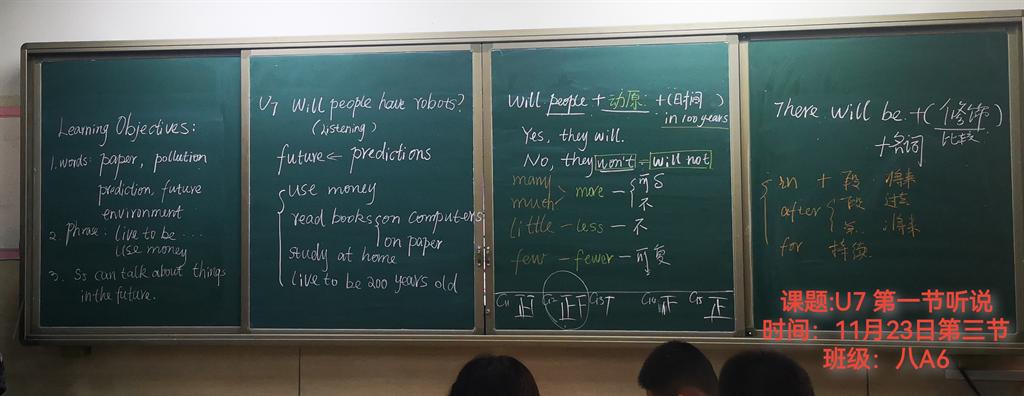 Learning Objectives:
1. words: paper, pollution
prediction, future
environment
2. Phrase: live to be ....
use money
3. Ss can talk about things
in the future.
U7 Will people have robots?
(Listening)
future ← predictions
use money
read books on computers
on paper
study at home
live to be 200 years old
Will people + 动原 + (时间)
in 100 years
Yes, they will.
No, they won't = will not
many
much
more - 可S
不
little - less - 不
few - fewer - 可复
G1 正 G2 正 G3 G4 正 G5 正
There will be + (修饰)
比较
+ 名词
in + 段 将来
after 段 过去
点 将来
for 持续
课题:U7 第一节听说
时间: 11月23日第三节
班级: 八A6